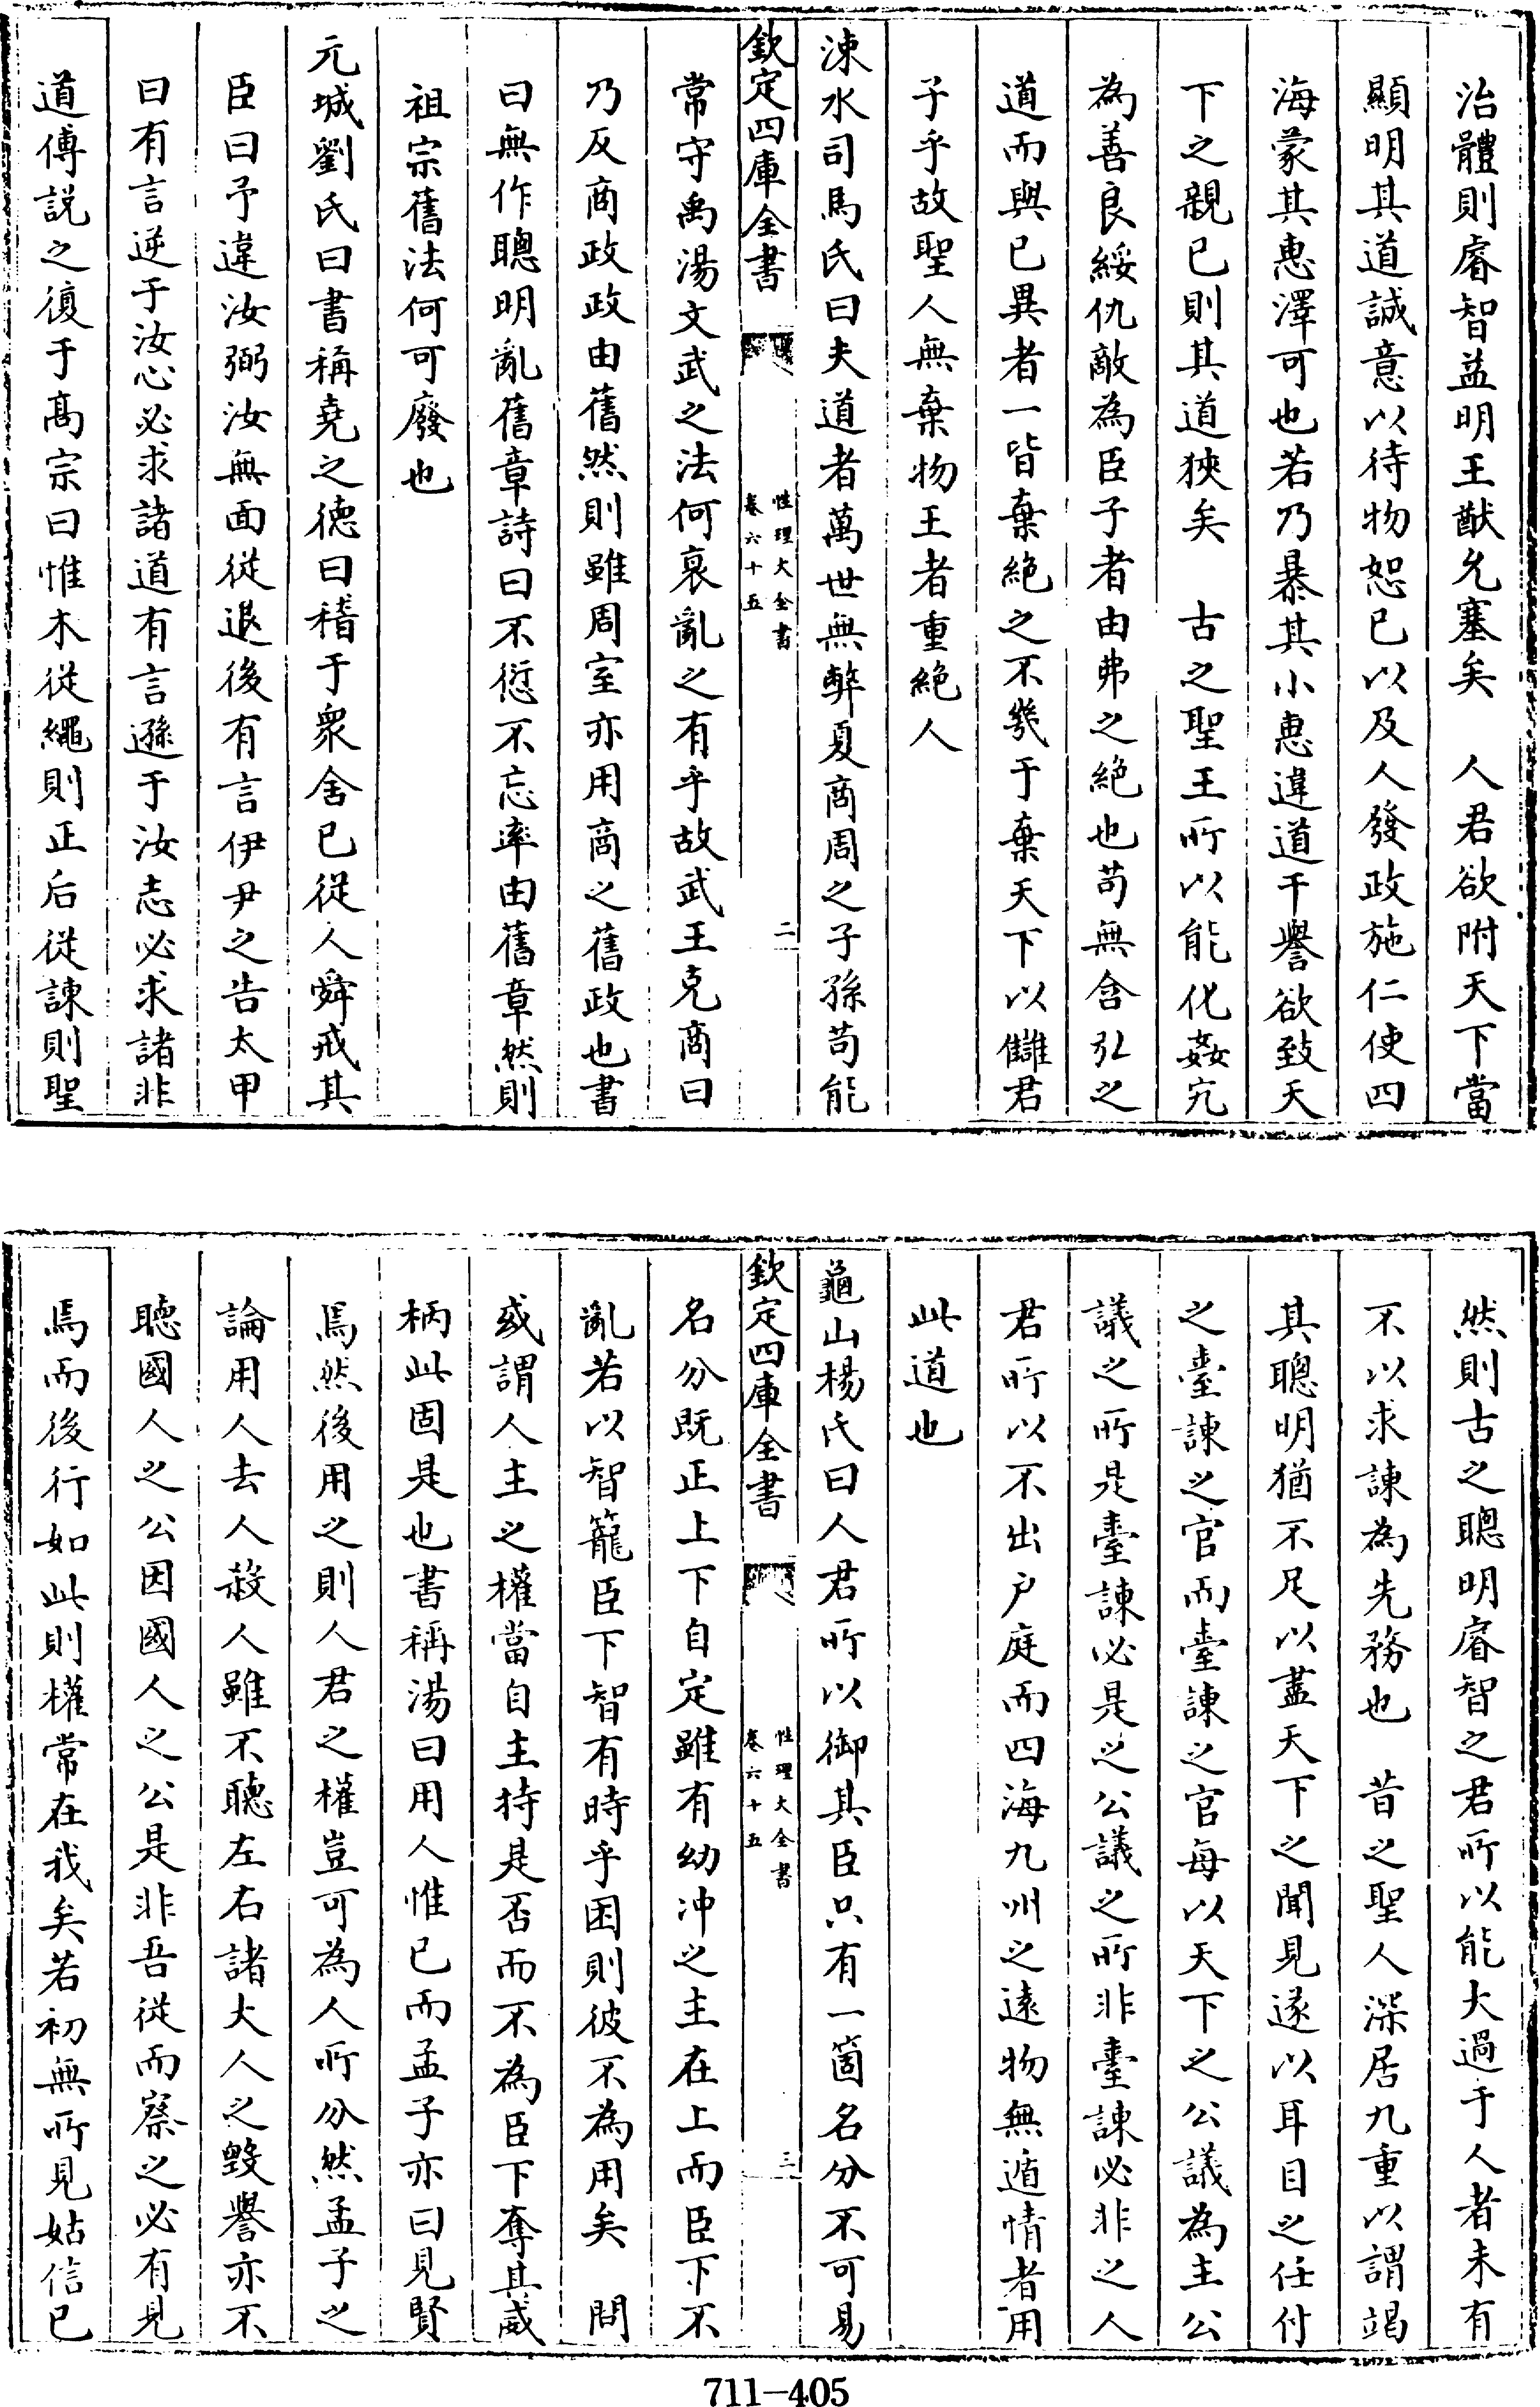 治體則睿智益明王猷允塞矣　人君欲附天下當
顯明其道誠意以待物恕己以及人發政施仁使四
海蒙其惠澤可也若乃暴其小惠違道干譽欲致天
下之親己則其道狹矣　古之聖王所以能化姦宄
為善良綏仇敵為臣子者由弗之絶也苟無含弘之
道而與己異者一皆棄絶之不幾于棄天下以讎君
子乎故聖人無棄物王者重絶人
涑水司馬氏曰夫道者萬世無弊夏商周之子孫苟能
欽定四庫全書　性理大全書卷六十五　二
常守禹湯文武之法何衰亂之有乎故武王克商曰
乃反商政政由舊然則雖周室亦用商之舊政也書
曰無作聰明亂舊章詩曰不愆不忘率由舊章然則
祖宗舊法何可廢也
元城劉氏曰書稱堯之德曰稽于衆舍已從人舜戒其
臣曰予違汝弼汝無面從退後有言伊尹之告太甲
曰有言逆于汝心必求諸道有言遜于汝志必求諸非
道傅説之復于髙宗曰惟木從繩則正后從諫則聖
然則古之聰明睿智之君所以能大過于人者未有
不以求諫為先務也　昔之聖人深居九重以謂竭
其聰明猶不足以盡天下之聞見遂以耳目之任付
之臺諫之官而臺諫之官每以天下之公議為主公
議之所是臺諫必是之公議之所非臺諫必非之人
君所以不出户庭而四海九州之遠物無遁情者用
此道也
龜山楊氏曰人君所以御其臣只有一箇名分不可易
欽定四庫全書　性理大全書卷六十五　三
名分既正上下自定雖有幼冲之主在上而臣下不
亂若以智籠臣下智有時乎困則彼不為用矣　問
或謂人主之權當自主持是否而不為臣下奪其威
柄此固是也書稱湯曰用人惟已而孟子亦曰見賢
焉然後用之則人君之權豈可為人所分然孟子之
論用人去人殺人雖不聽左右諸大人之毀譽亦不
聽國人之公因國人之公是非吾從而察之必有見
焉而後行如此則權常在我矣若初無所見姑信已
711-405